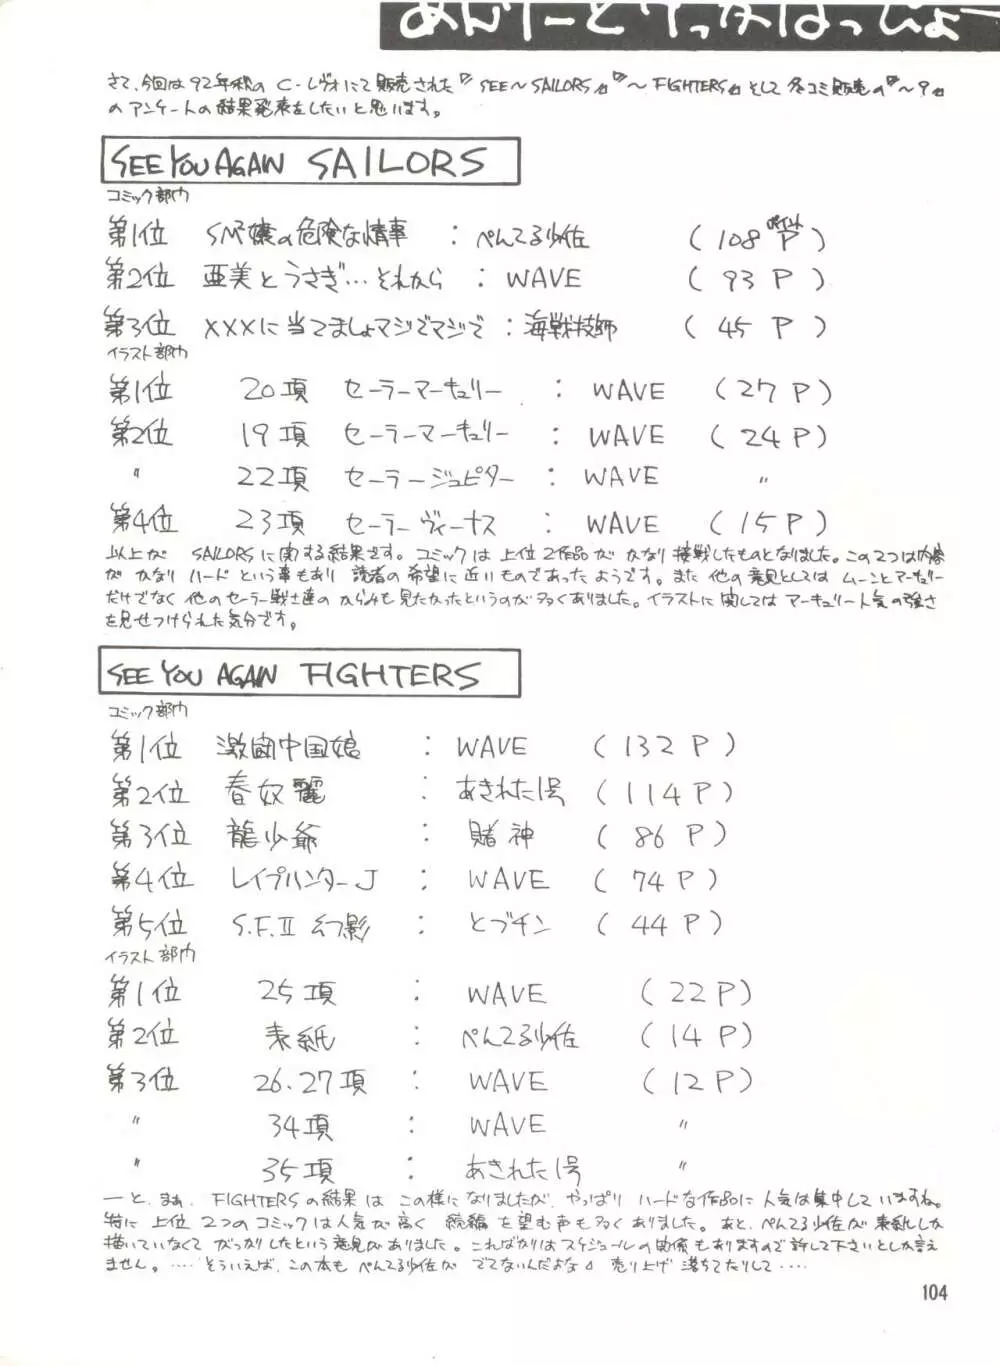 あんけーとけっかはっぴょー
さて、今回は92年秋の C・レヴォにて販売された『SEE～SAILORS』『～FIGHTERS』そして冬コミ販売の『～9』
のアンケートの結果発表をしたいと思います。
SEE YOU AGAIN SAILORS
コミック部門
第1位 SM嬢の危険な情事 : ぺんてる少佐 (108ポイントP)
第2位 亜美とうさぎ…それから : WAVE (93P)
第3位 XXXに当てましょマジでマジで : 海戦技師 (45P)
イラスト部門
第1位 20項 セーラーマーキュリー : WAVE (27P)
第2位 19項 セーラーマーキュリー : WAVE (24P)
〃 22項 セーラージュピター : WAVE 〃
第4位 23項 セーラーヴィーナス : WAVE (15P)
以上が SAILORSに関する結果です。コミックは上位2作品が かなり接戦したものとなりました。この2つは内容
が かなり ハード という事もあり 読者の希望に近いものであったようです。また 他の意見としては ムーンとマーキュリー
だけでなく 他のセーラー戦士達の からみも見たかったというのが多くありました。イラストに関してはマーキュリー人気の強さ
を見せつけられた気分です。
SEE YOU AGAIN FIGHTERS
コミック部門
第1位 激闘中国娘 : WAVE (132P)
第2位 春奴麗 : あきれた1号 (114P)
第3位 龍少爺 : 賭神 (86P)
第4位 レイプハンターJ : WAVE (74P)
第5位 S.F.II 幻影 : とブチン (44P)
イラスト部門
第1位 25項 : WAVE (22P)
第2位 表紙 : ぺんてる少佐 (14P)
第3位 26.27項 : WAVE (12P)
〃 34項 : WAVE 〃
〃 35項 : あきれた1号 〃
ーと、まぁ、FIGHTERSの結果は この様になりましたが、やっぱり ハードな作品に 人気は集中していますね。
特に 上位 2つのコミックは人気が高く 続編を望む声も多くありました。あと、ぺんてる少佐が 表紙しか
描いていなくて がっかりしたという意見がありました。こればかりはスケジュールの関係もありますので許して下さいとしか言え
ません。……そういえば、この本も ぺんてる少佐が でてないんだよな 売り上げ 落ちてたりして……
104